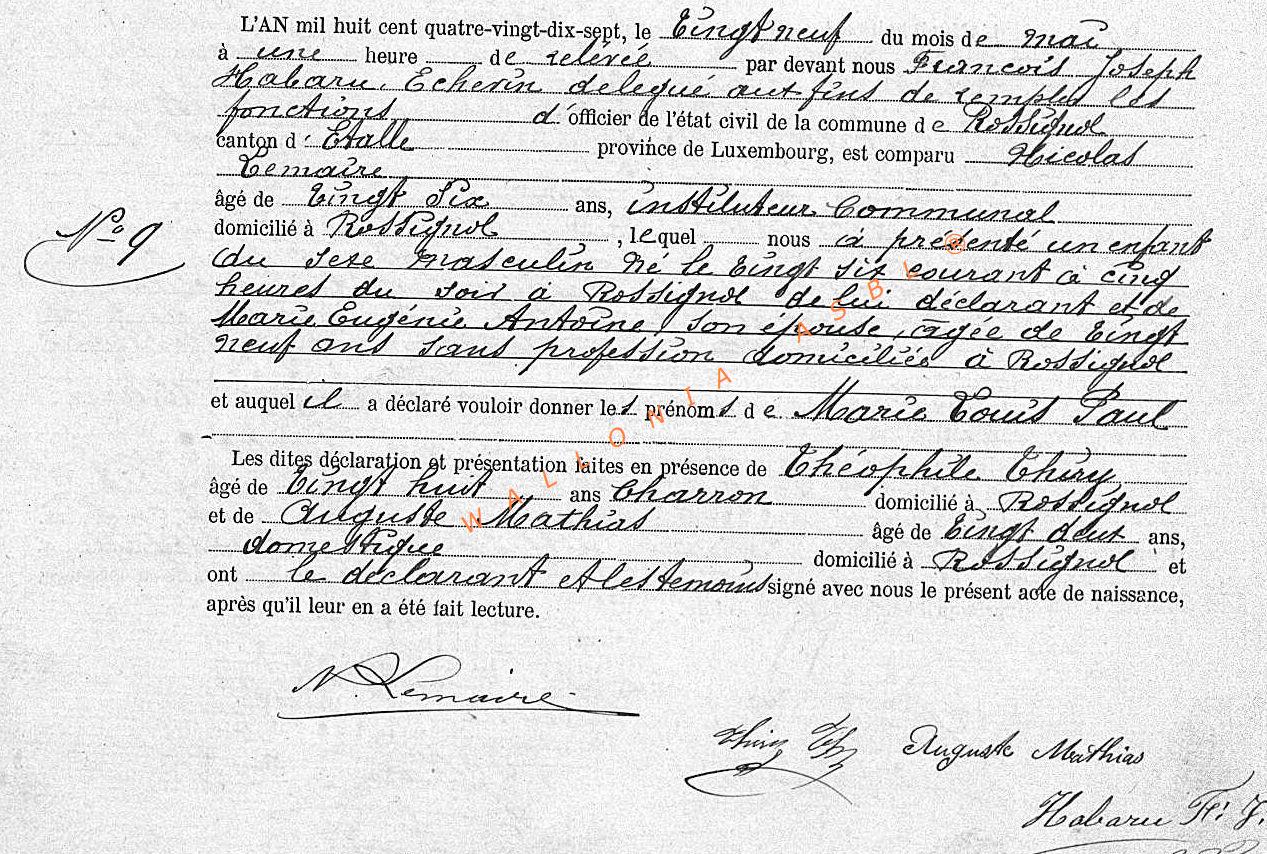 L'AN mil huit cent quatre-vingt-dix-sept, le Vingt neuf du mois de mai
à une heure de relévée par devant nous François Joseph
Habaru, Echevin delegué aux fins de remplir les
fonctions d'officier de l'état civil de la commune de Rossignol
canton d'Etalle province de Luxembourg, est comparu Nicolas
Lemaire
âgé de Vingt Six ans, instituteur Communal
domicilié à Rossignol, lequel nous à présenté un enfant
N° 9
du sexe masculin né le Vingt six courant à cinq
heures du soir à Rossignol de lui déclarant et de
Marie Eugénie Antoine, son épouse, agée de Vingt
neuf ans sans profession domiciliés à Rossignol
et auquel il a déclaré vouloir donner les prénoms de Marie Louis Paul
Les dites déclaration et présentation faites en présence de Théophile Thiry
âgé de Vingt huit ans Charron domicilié à Rossignol
et de Auguste Mathias âgé de Vingt deux ans,
domestique domicilié à Rossignol et
ont le déclarant et les temoins signé avec nous le présent acte de naissance,
après qu'il leur en a été fait lecture.
WALLONIA ASBL ®
N. Lemaire
Thiry Th Auguste Mathias
Habaru Fr. J.